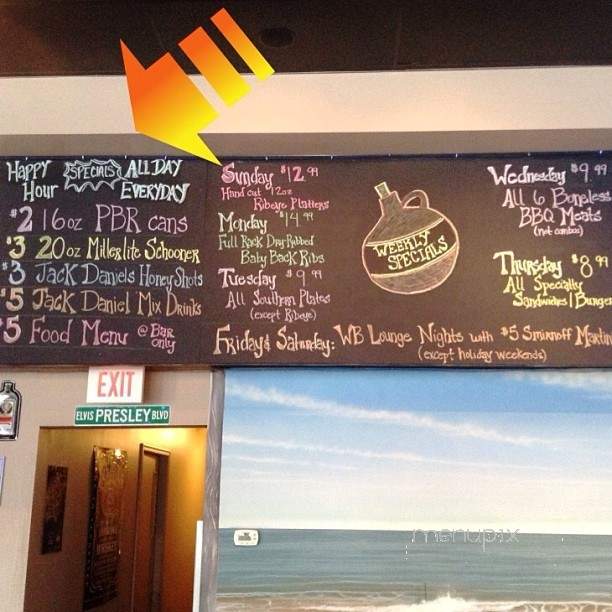 Happy Hour SPECIALS ALL DAY EVERYDAY
$2 16oz PBR cans
$3 20oz Miller lite Schooner
$3 Jack Daniels Honey Shots
$5 Jack Daniel Mix Drinks
$5 Food Menu @ Bar only
Sunday $12.99
Hand cut 12oz
Ribeye Platters
Monday $14.99
Full Rack Dry-Rubbed
Baby Back Ribs
Tuesday $9.99
All Southern Plates
(except Ribeye)
WEEKLY
SPECIALS
Wednesday $9.99
All 6 Boneless
BBQ Meats
(not combos)
Thursday $8.99
All Specialty
Sandwiches/Burger
Friday & Saturday: WB Lounge Nights with $5 Smirnoff Martin
(except holiday weekends)
EXIT
ELVIS PRESLEY BLVD
menupix